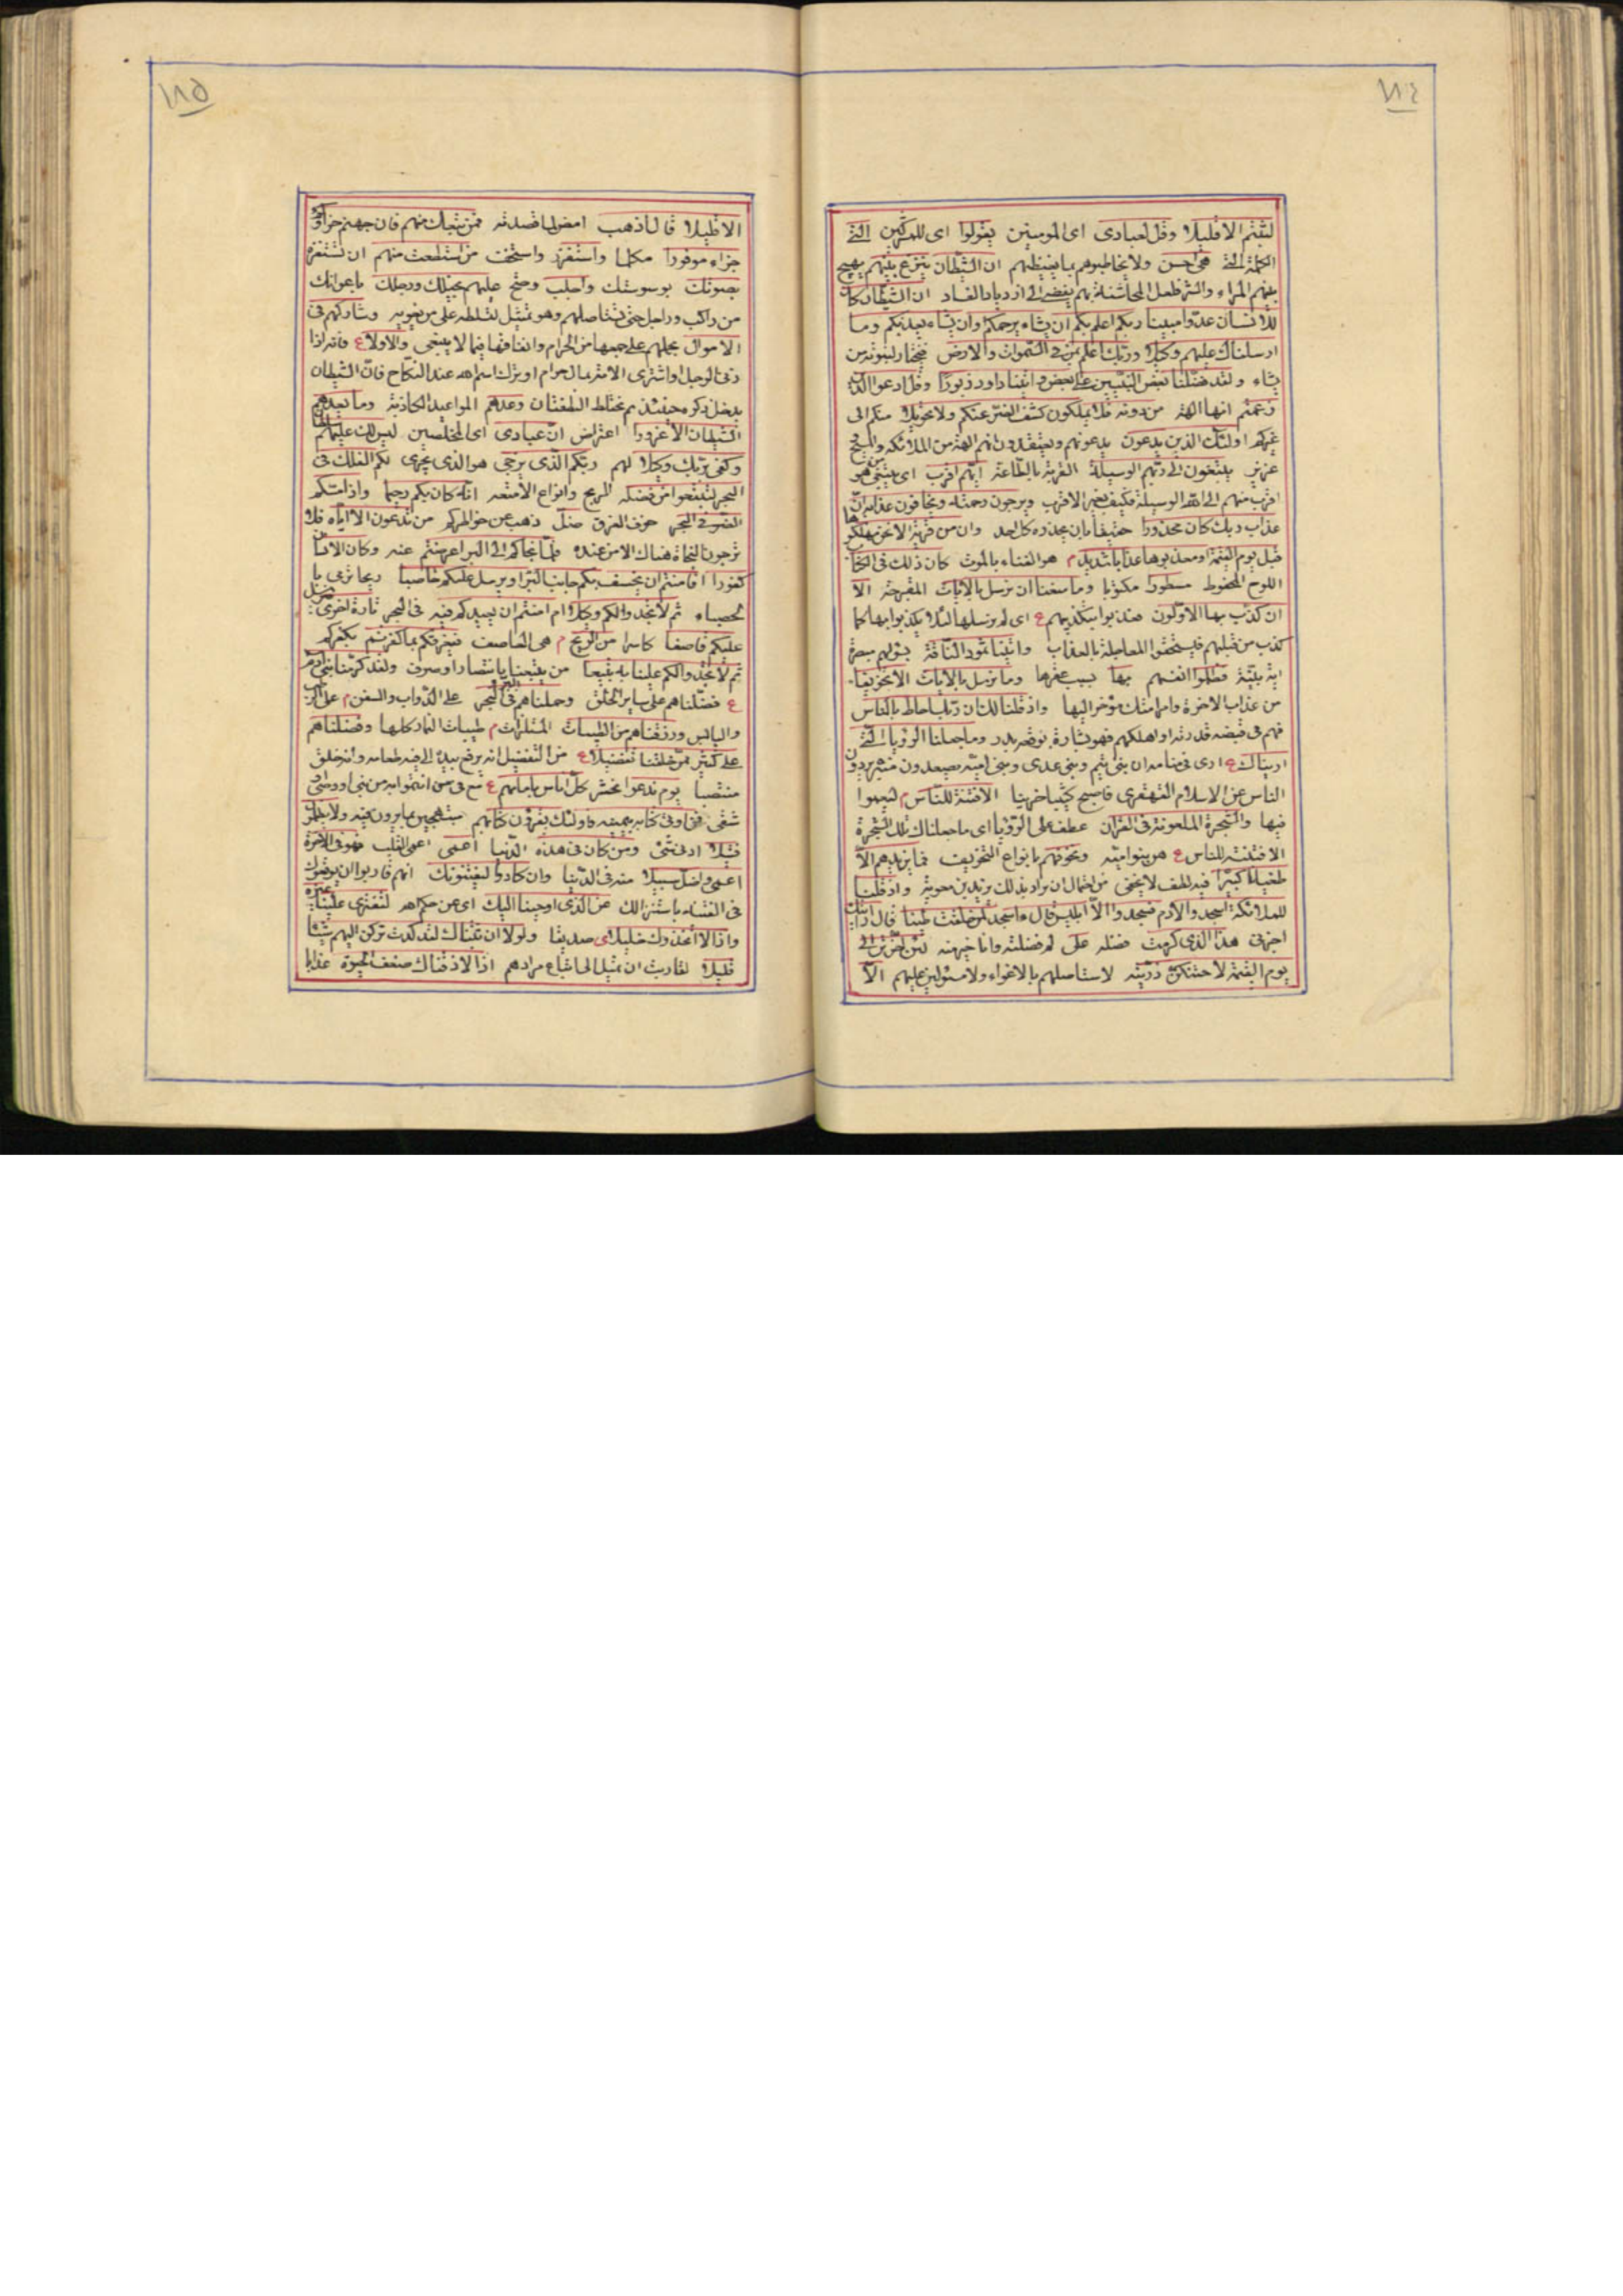 ١١٤
لبثتم الا قليلا وقل لعبادى اى المؤمنين يقولوا اى للمشركين التى
الكلمة التى هى احسن ولا يخاطبوهم بما يغيظهم ان الشيطان ينزغ بينهم يهيج
بينهم المراء والشر فلعل المخاشنة بهم يفضى الى ازدياد الفساد ان الشيطان كان
للانسان عدوا مبينا ربكم اعلم بكم ان يشاء يرحمكم وان يشاء يعذبكم وما
ارسلناك عليهم وكيلا وربك اعلم بمن فى السموات والارض فيختار لنبوته من
يشاء ولقد فضلنا بعض النبيين على بعض و اتينا داود زبورا وقل ادعوا الذين
زعمتم انها الهة من دونه فلا يملكون كشف الضر عنكم ولا تحويلا منكم الى
غيركم اولئك الذين يدعون يدعونهم ويعتقدون انهم الهة من الملائكة والمسيح و
عزير يبتغون الى ربهم الوسيلة القربة بالطاعة ايهم اقرب اى يبتغى من هو
اقرب منهم الى الله الوسيلة فكيف بغير الاقرب ويرجون رحمته ويخافون عذابه ان
عذاب ربك كان محذورا حقيقا بان يحذره كل احد وان من قرية الا نحن مهلكوها
قبل يوم القيمة او معذبوها عذابا شديدا م هو الفناء بالموت كان ذلك فى الكتاب
اللوح المحفوظ مسطورا مكتوبا وما منعنا ان نرسل بالايات المقترحة الا
ان كذب بها الاولون فعذبوا بتكذيبهم ع اى لم نرسلها لئلا يكذبوا بها كما
كذب من قبلهم فيستحقوا المعاجلة بالعقاب واتينا ثمود الناقة بسؤلهم مبصرة
اية بينة فظلموا انفسهم بها بسبب عقرها وما نرسل بالايات الا تخويفا
من عذاب الاخرة وامر امتك مؤخر اليها واذ قلنا لك ان ربك احاط بالناس
فهم فى قبضة قدرته او اهلكهم فهو بشارة بوقعة بدر وما جعلنا الرؤيا التى
اريناك ع ارى فى منامه ان بنى تيم وبنى عدى وبنى امية يصعدون منبره يردون
الناس عن الاسلام القهقرى فاصبح كئيبا حزينا الا فتنة للناس م ليعموا
فيها والشجرة الملعونة فى القران عطف على الرؤيا اى ما جعلناك تلك الشجرة
الا فتنة للناس ع هو بنو امية ونخوفهم بانواع التخويف فما يزيدهم الا
طغيانا كبيرا فيه لطف لا يخفى من احتمال ان يراد بذلك يزيد بن معوية واذ قلنا
للملائكة اسجدوا لادم فسجدوا الا ابليس قال ءاسجد لمن خلقت طينا قال ارايتك
اخبرنى هذا الذى كرمت فضله على لم فضلته وانا خير منه لئن اخرتن الى
يوم القيمة لاحتنكن ذريته لاستاصلهم بالاغواء ولا مستولين عليهم الا
١١٥
الا قليلا قال اذهب امض لما قصدته فمن تبعك منهم فان جهنم جزاؤكم
جزاء موفورا مكملا واستفزز واستخف من استطعت منهم ان تستفزه
بصوتك بوسوستك واجلب وصح عليهم بخيلك ورجلك باعوانك
من راكب وراجل حتى تستاصلهم وهو تمثيل لتسلطه على من يغويه وشاركهم فى
الاموال بحملهم على جمعها من الحرام وانفاقها فيما لا ينبغى والاولاد ع فانه اذا
زنى الرجل او اشترى الامة بمال حرام او يترك اسم الله عند النكاح فان الشيطان
يدخل ذكره حينئذ ثم يختلط النطفتان وعدهم المواعيد الكاذبة وما يعدهم
الشيطان الا غرورا اعتراض ان عبادى اى المخلصين ليس لك عليهم سلطان
وكفى بربك وكيلا لهم ربكم الذى يزجى هو الذى يجرى لكم الفلك فى
البحر لتبتغوا من فضله الربح وانواع الامتعة انه كان بكم رحيما واذا مسكم
الضر فى البحر خوف الغرق ضل ذهب عن خواطركم من تدعون الا اياه فلا
ترجون النجاة هناك الا من عنده فلما نجاكم الى البر اعرضتم عنه وكان الانسان
كفورا افامنتم ان يخسف بكم جانب البر او يرسل عليكم حاصبا ريحا ترمى با
لحصباء ثم لا تجدوا لكم وكيلا ام امنتم ان يعيدكم فيه فى البحر تارة اخرى فيرسل
عليكم قاصفا كاسرا من الريح م هى العاصف فيغرقكم بما كفرتم بكفركم
ثم لا تجدوا لكم علينا به تبيعا من يتبعنا بانتصار او صرف ولقد كرمنا بنى ادم
ع فضلناهم على ساير الخلق وحملناهم فى البر والبحر على الدواب والسفن م على الرطب
واليابس ورزقناهم من الطيبات المستلذات م طيبات الثمار كلها وفضلناهم
على كثير ممن خلقنا تفضيلا ع من التفضيل انه يرفع بيده الى فيه طعامه وانه خلق
منتصبا يوم ندعوا نحشر كل اناس بامامهم ع
شقى فمن اوتى كتابه بيمينه فاولئك يقرؤن كتابهم مبتهجين بما يرون فيه ولا يظلمون
فتيلا ادنى شئ ومن كان فى هذه الدنيا اعمى اعمى القلب فهو فى الاخرة
اعمى واضل سبيلا منه فى الدنيا وان كادوا ليفتنونك انهم قاربوا ان يوقعوك
فى الفتنة باستنزالك عن الذى اوحينا اليك اى عن حكمه لتفترى علينا غيره
واذا لاتخذوك خليلا اى صديقا ولولا ان ثبتناك لقد كدت تركن اليهم شيئا
قليلا لقاربت ان تميل الى اتباع مرادهم اذا لاذقناك ضعف الحيوة عذابا